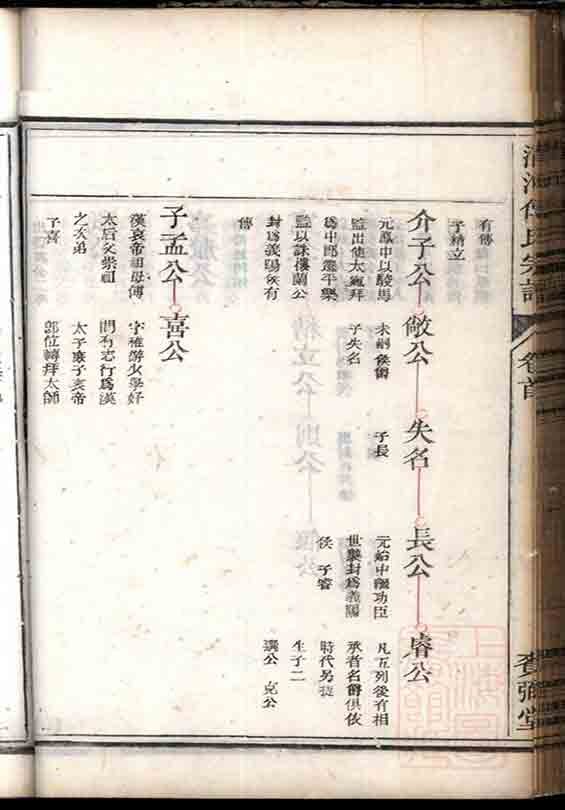 清河傅氏宗譜
卷首
賚弼堂
有傳
子精立
介子公
敞公
失名
長公
睿公
元鳳中以駿馬
監出使大宛拜
爲中郎遷平樂
監以誅樓蘭公
封爲義陽矦有
傳
未嗣矦爵
子失名
子長
元始中繼功臣
世襲封爲義陽
矦 子睿
凡互列後有相
承者名爵俱依
時代另提
生子二
選公 克公
子孟公
喜公
漢哀帝祖母傅
太后父崇祖
之次弟
子喜
字稚游少學好
問有志行爲漢
太子庶子哀帝
郎位轉拜太師